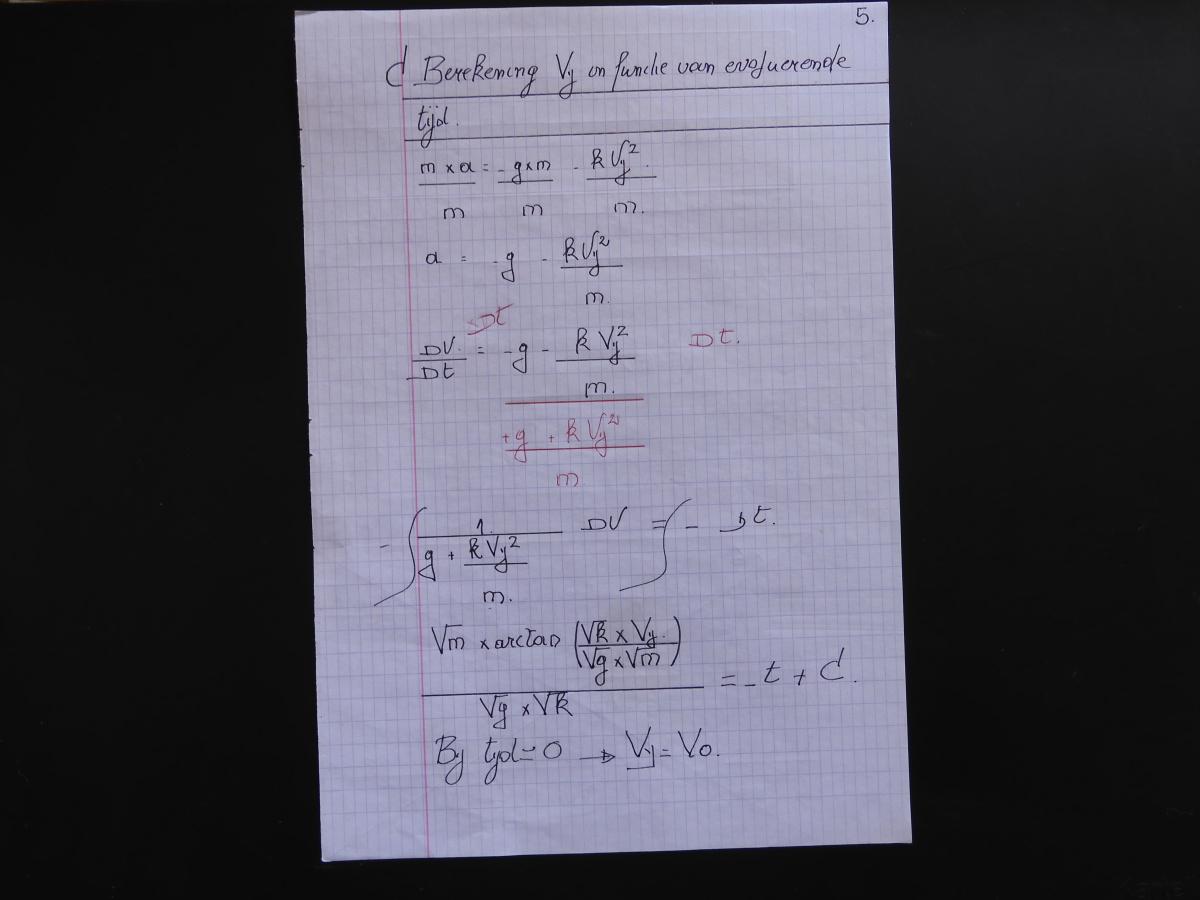 5.
d Berekening Vy in functie van evoluerende
tijd.
m × a = - g×m - k Vy²
m m m.
a = - g - k Vy²
m.
Dt
DV = - g - k Vy² Dt.
Dt m.
+ g + k Vy²
m
- ∫ 1. DV = ∫ - Dt.
g + k Vy²
m.
√m × arctan (√k × Vy / √g × √m)
= - t + C.
√g × √k
By tyd = 0 → Vy = Vo.